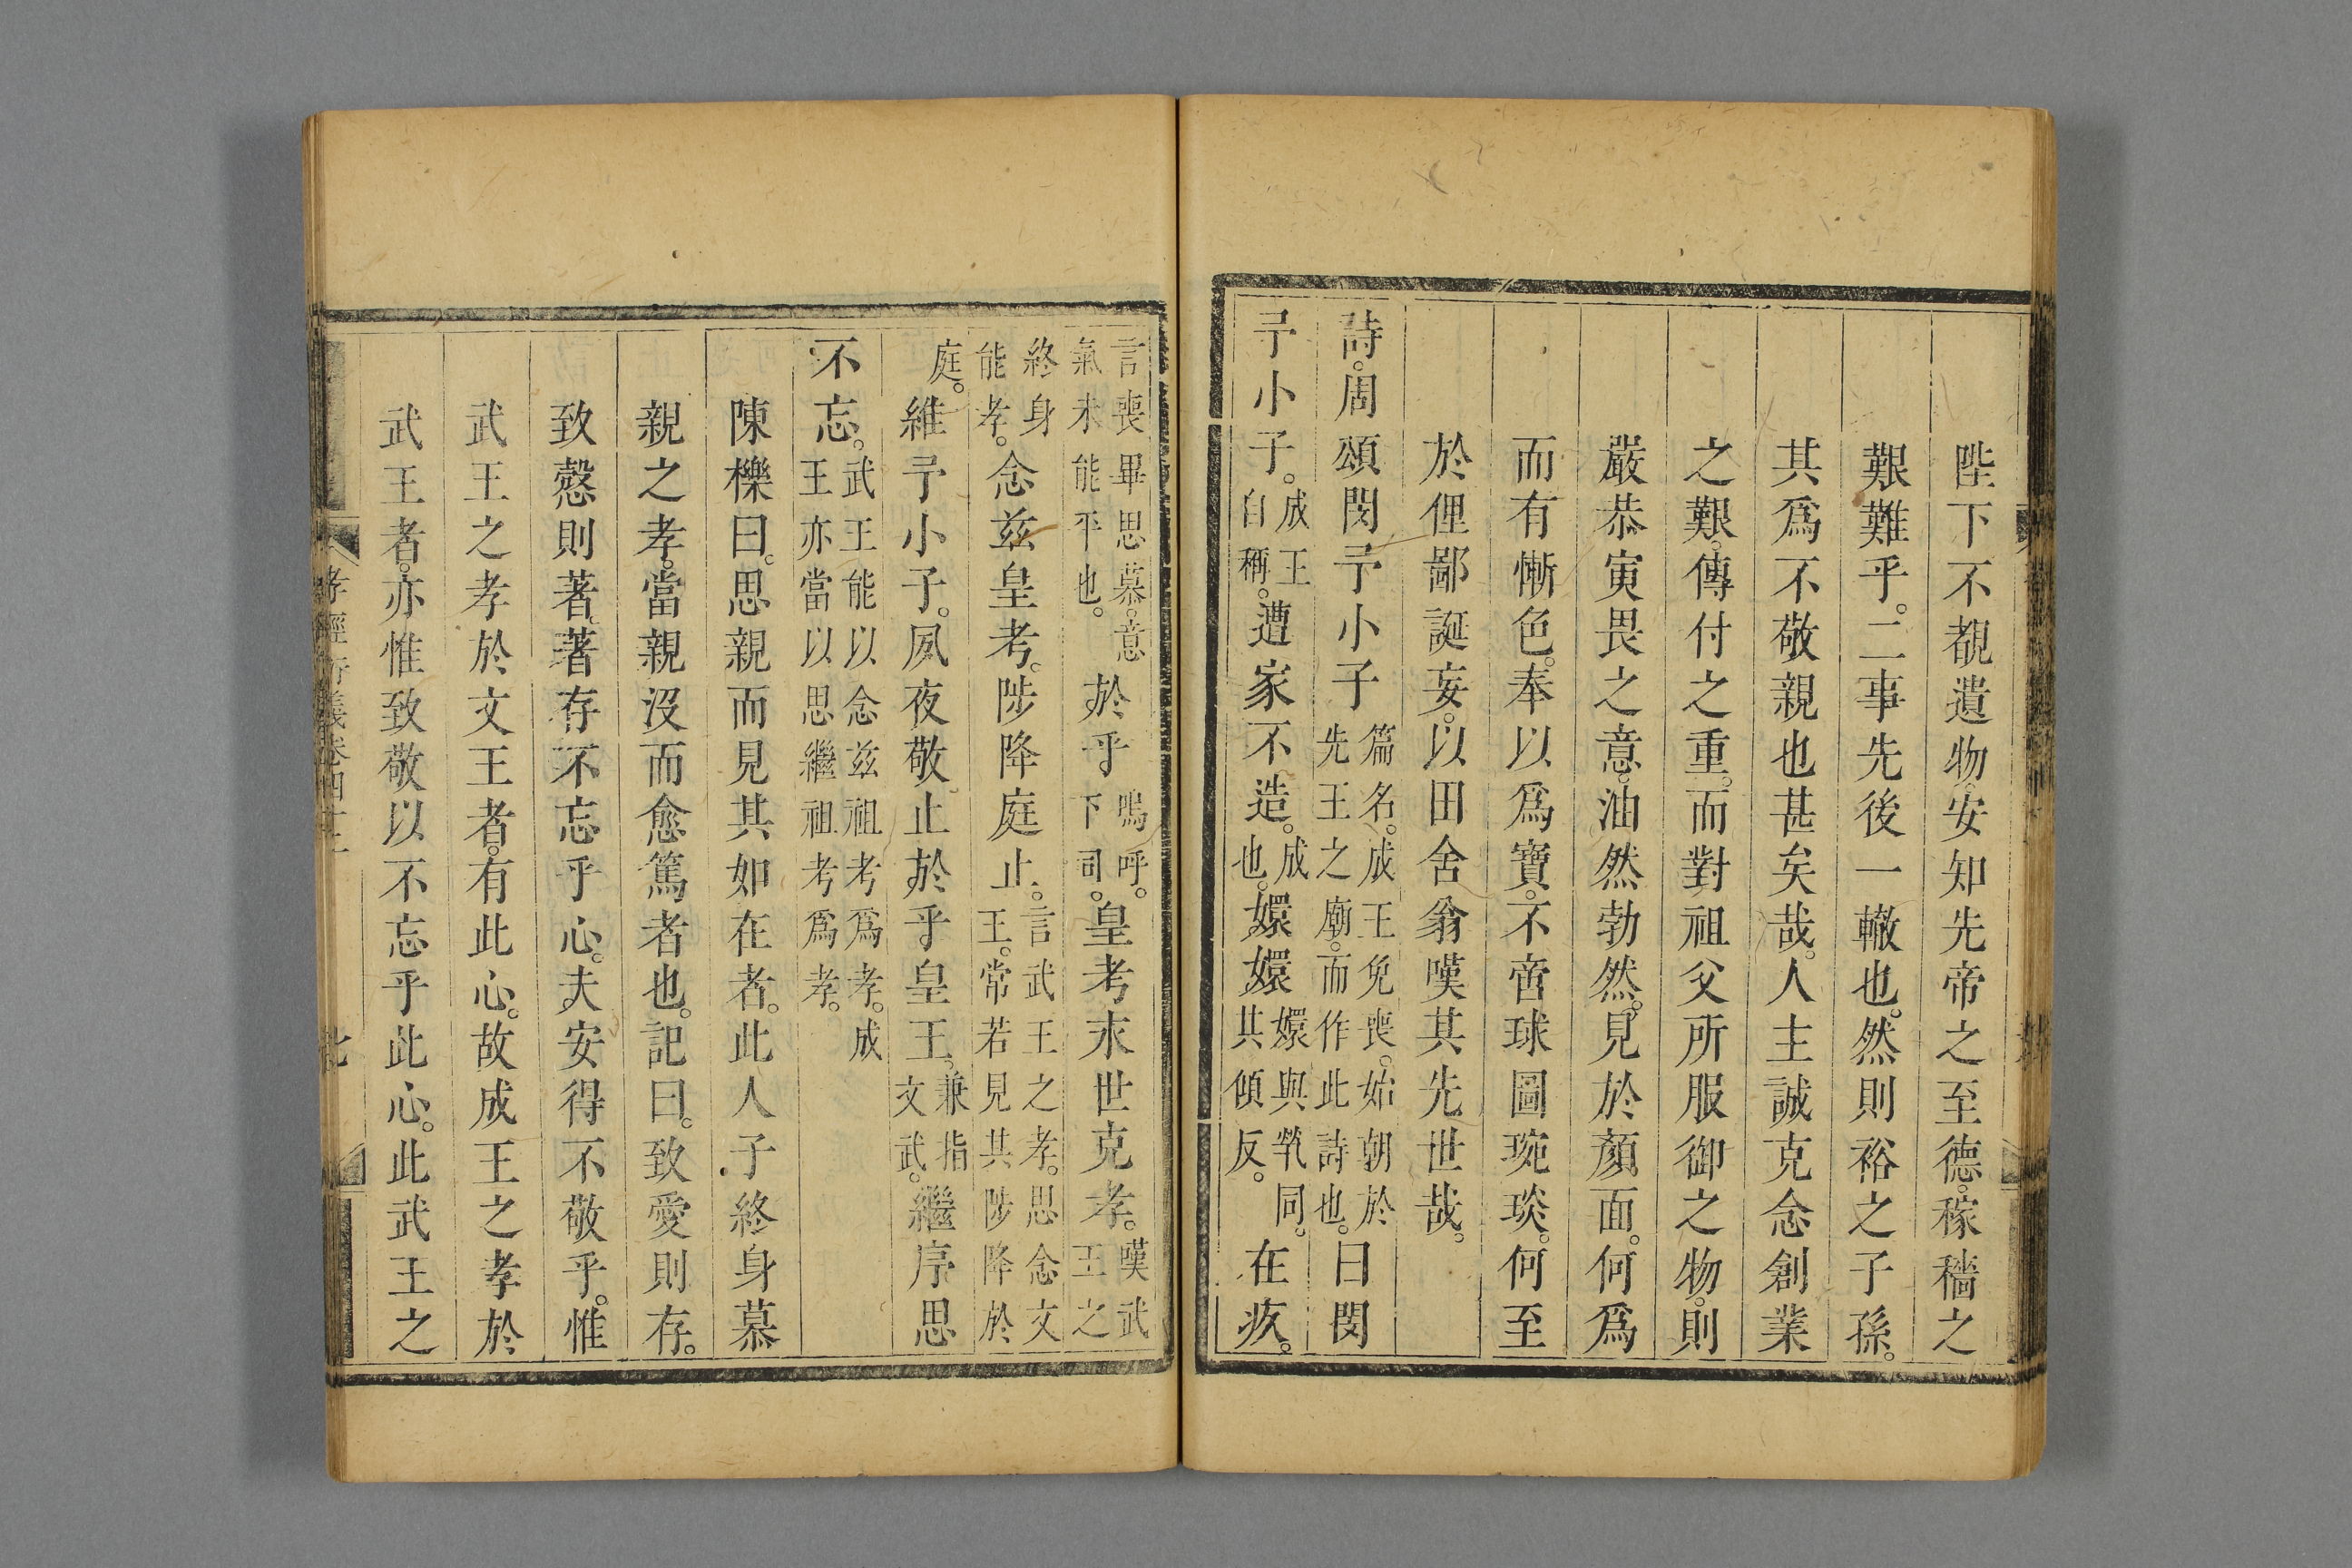 陛下不覩遺物。安知先帝之至德。稼穡之
艱難乎。二事先後一轍也。然則裕之子孫。
其爲不敬親也甚矣哉。人主誠克念創業
之艱。傳付之重。而對祖父所服御之物。則
嚴恭寅畏之意。油然勃然。見於顏面。何爲
而有慚色。奉以爲寶。不啻球圖琬琰。何至
於俚鄙誕妄。以田舍翁嘆其先世哉。
詩。周頌閔予小子篇名。成王免喪。始朝於先王之廟。而作此詩也。曰閔
予小子。成王自稱。遭家不造。成也。嬛嬛嬛與煢同。其傾反。在疚。
言喪畢思慕。意氣未能平也。於乎嗚呼。下司。皇考永世克孝。嘆武王之
終身能孝。念兹皇考。陟降庭止。言武王之孝。思念文王。常若見其陟降於
庭。維予小子。夙夜敬止。於乎皇王。兼指文武。繼序思
不忘。武王能以念兹祖考爲孝。成王亦當以思繼祖考爲孝。
陳櫟曰。思親而見其如在者。此人子終身慕
親之孝。當親沒而愈篤者也。記曰。致愛則存。
致慤則著。著存不忘乎心。夫安得不敬乎。惟
武王之孝於文王者。有此心。故成王之孝於
武王者。亦惟致敬以不忘乎此心。此武王之
孝經衍義卷四十二